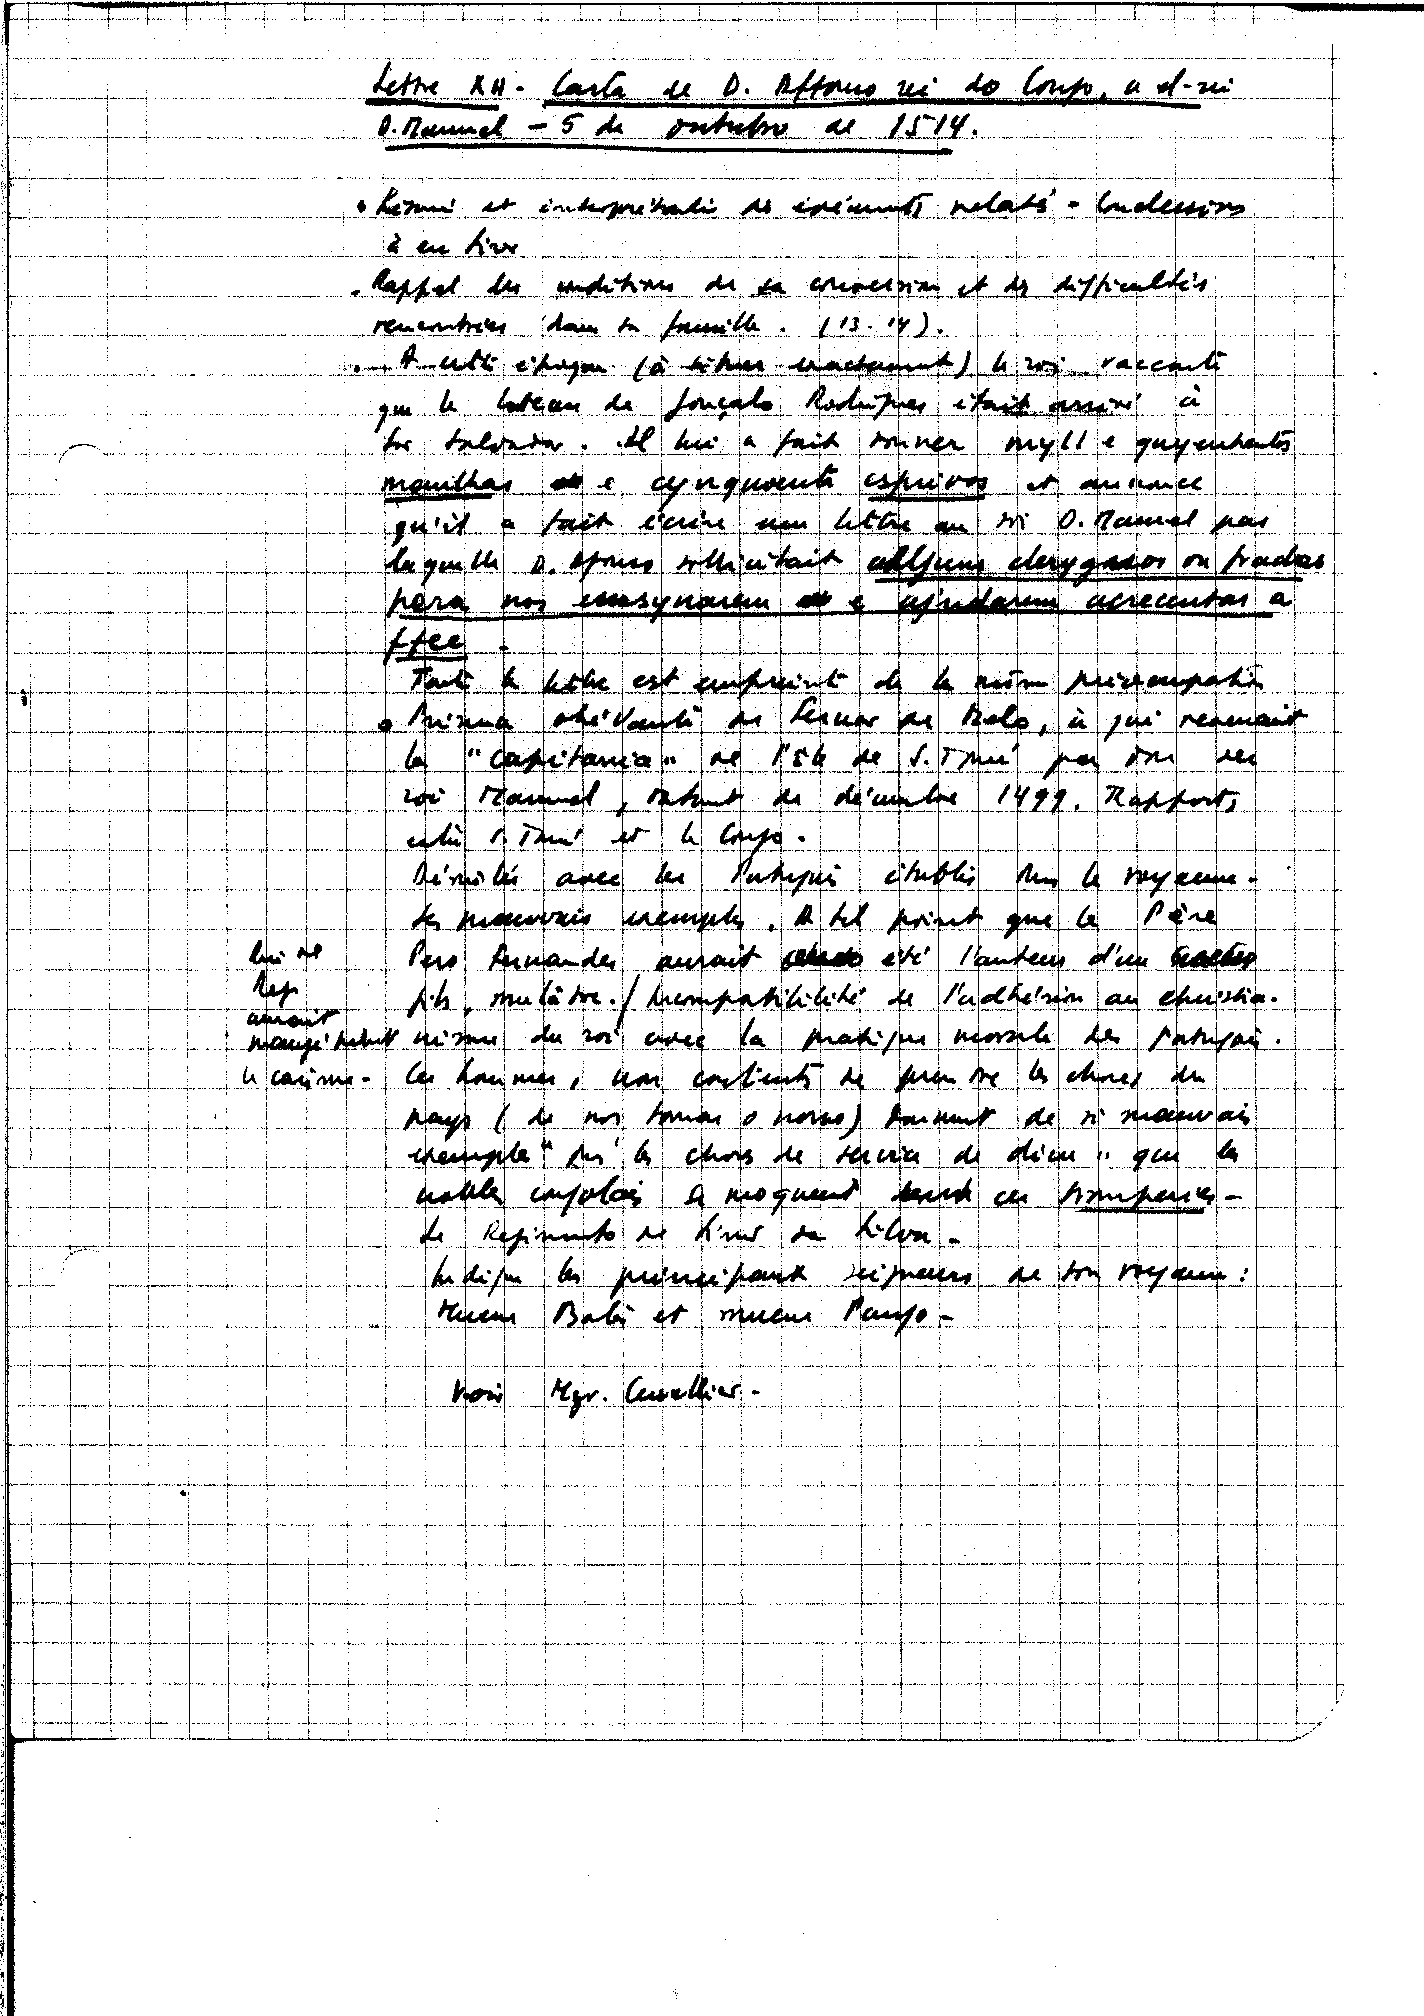 Lettre XII - Carta de D. Affonso rei do Congo, a el-rei
D. Manuel - 5 de outubro de 1514.
• Résumé et interprétation des événements relatés - Conclusions
à en tirer
. Rappel des conditions de sa conversion et des difficultés
rencontrées dans sa famille. (13-14).
. A cette époque (à situer exactement) le roi raconte
que le bateau de Gonçalo Rodrigues était arrivé à
Sao Salvador. Il lui a fait donner myll e quynhentas
manilhas e cynquoenta esprivos et annonce
qu'il a fait écrire une lettre au roi D. Manuel par
laquelle D. Afonso sollicitait allguns clerygos ou frades
pera nos emsynarem e ajudarem acrecentar a
ffee -
Toute la lettre est empreinte de la même préoccupation
• de Fernao de Melo, à qui revenait
la "capitania" de l'île de S. Tomé par don du
roi Manuel, datant de décembre 1499. Rapports
entre S. Tomé et le Congo.
Démêlés avec les Portugais établis dans le royaume.
Les mauvais exemples. A tel point que le Père
Pero Fernandes aurait été l'auteur d'un
fils, mulâtre. / Incompatibilité de l'adhésion au christia-
nisme du roi avec la pratique morale des Portugais.
Rui do
Rego
aurait
mangé
le carême -
Ces hommes, non contents de prendre les choses du
pays (de nos tomar o noso) donnent de si mauvais
exemples "ds les choses de service de dieu" que les
nobles congolais se moquent ces tromperies -
Le Regimento de Simao da Silva -
Indique les principaux seigneurs de son royaume :
Muene Bata et muene Pango -
Voir Mgr. Cuvellier -